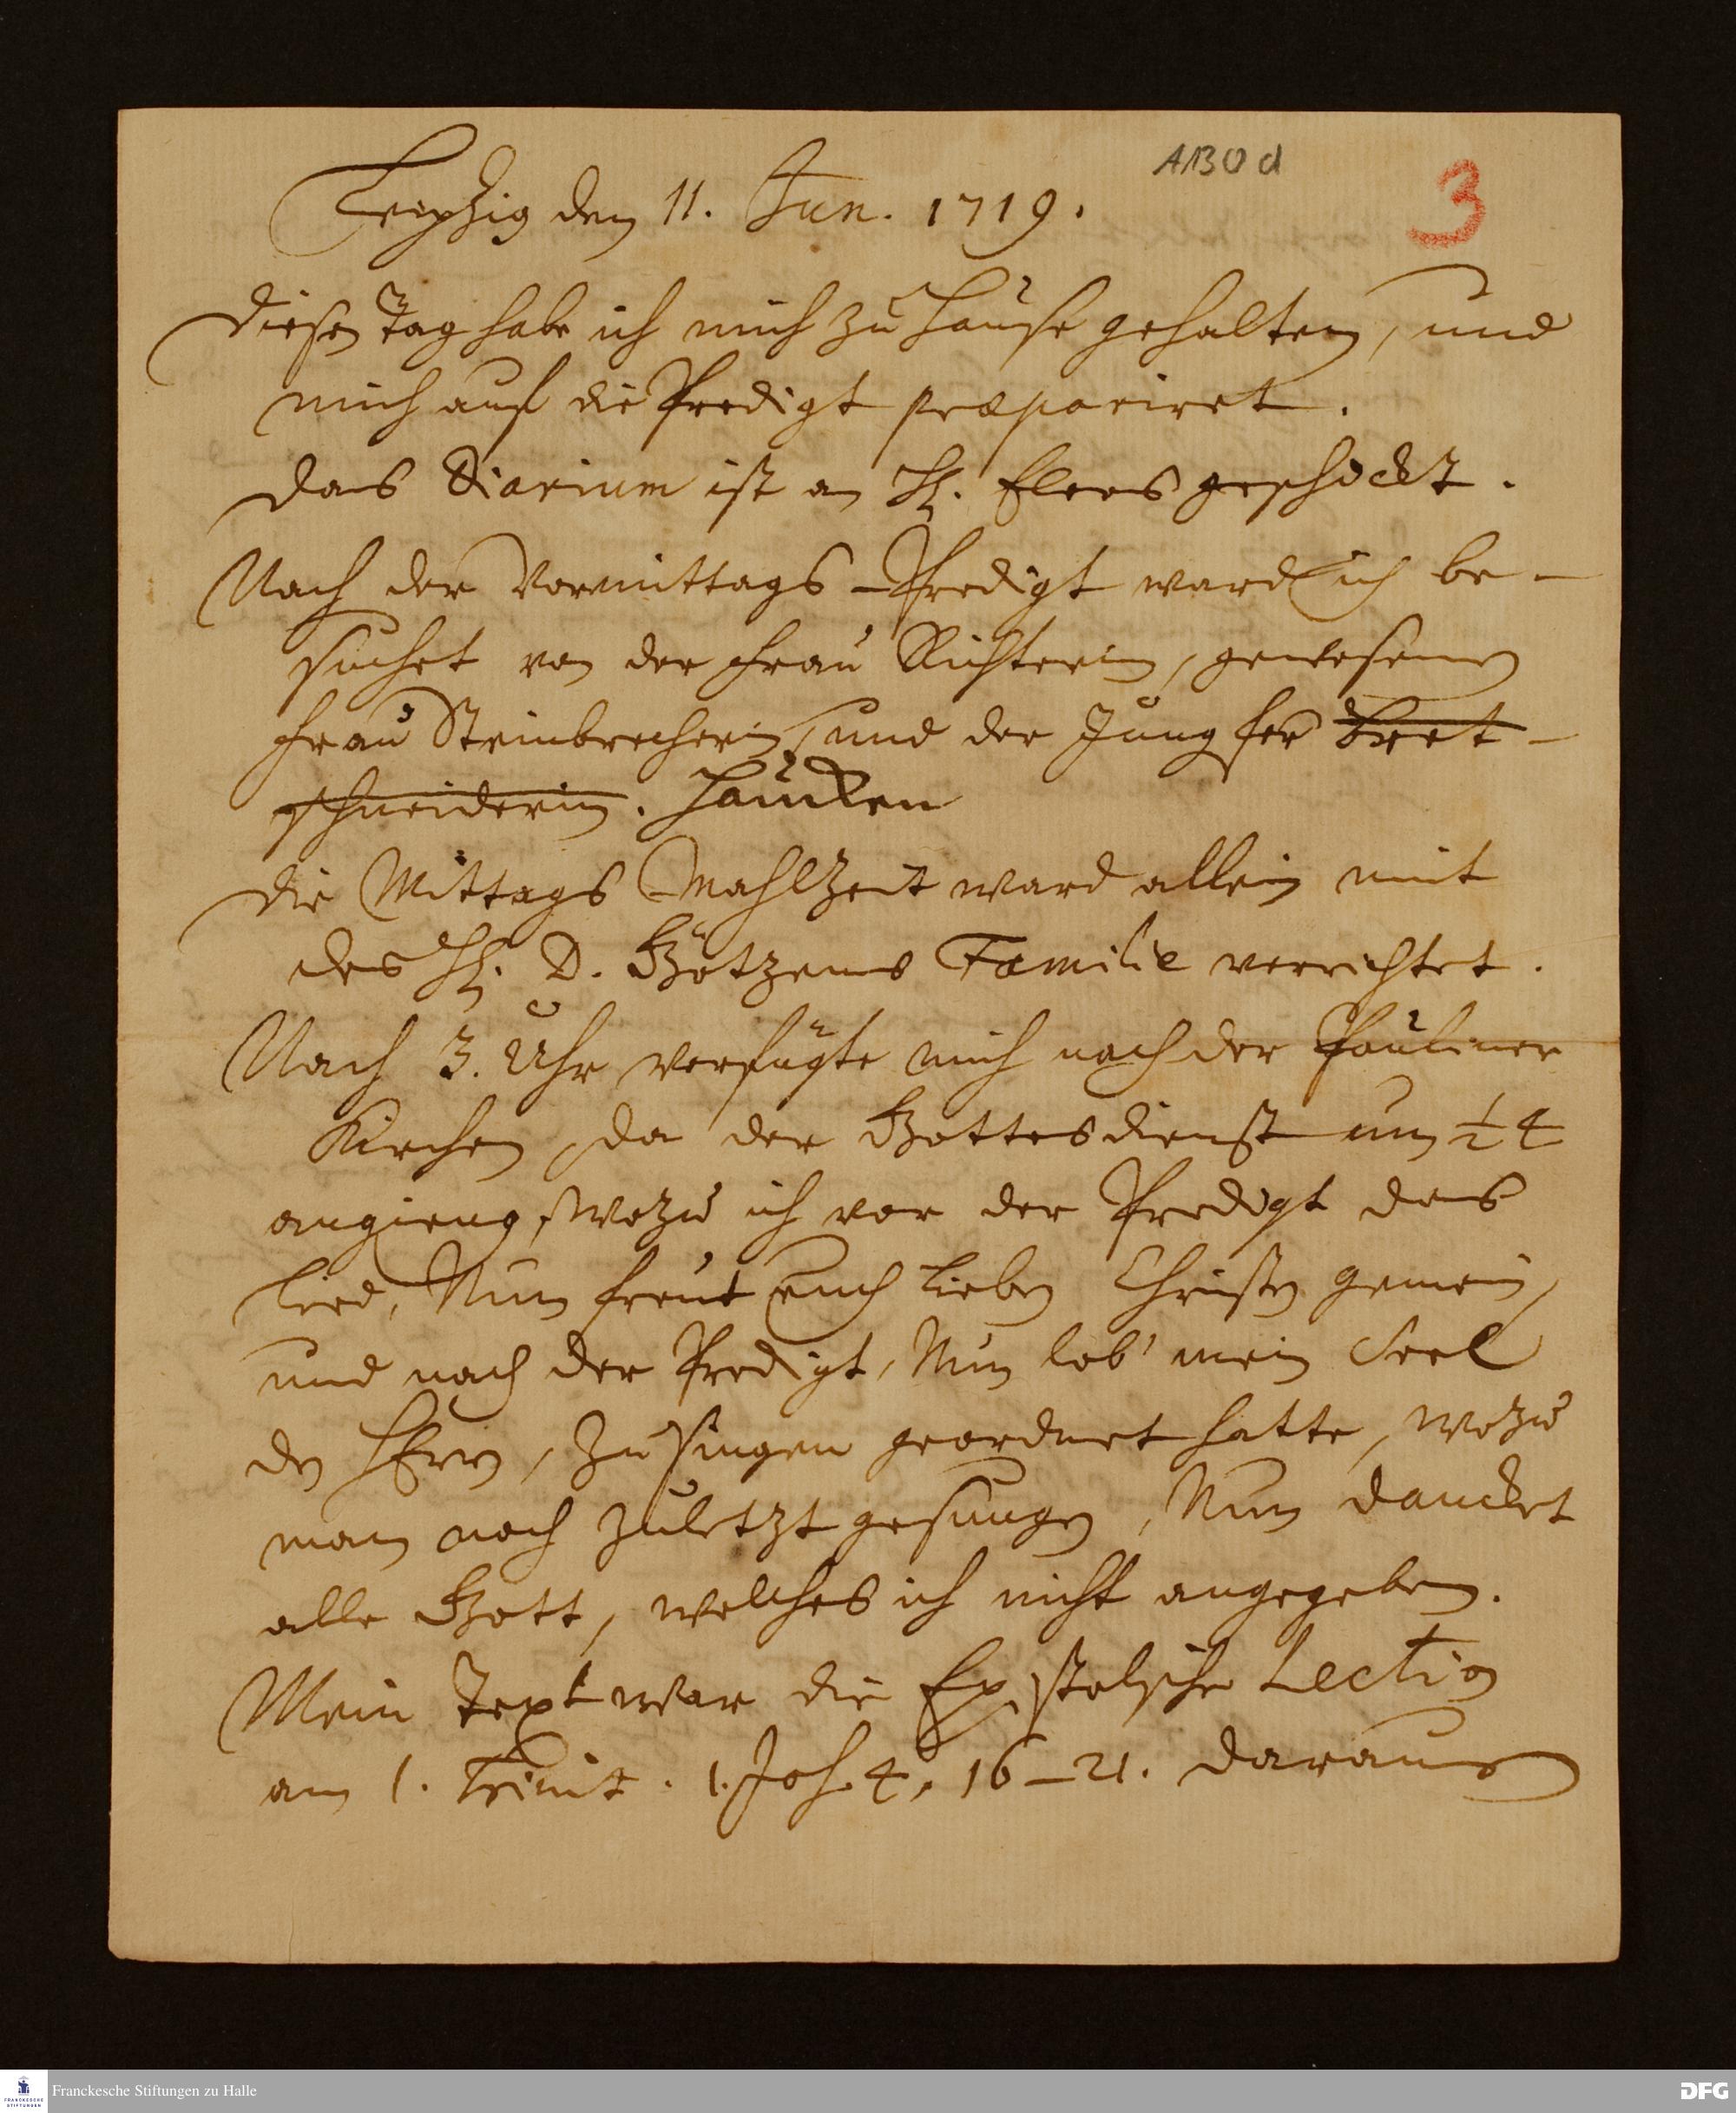 A130d
3
Leipzig den 11. Jun. 1719.
Diesen Tag habe ich mich zu Hause gehalten, und
mich auf die Predigt præpariret.
Das Diarium ist an H. Elers geschickt.
Nach der Vormittags-Predigt ward ich be-
suchet von der Frau Richterin, gewesenen
Frau Steinbrecherin, und der Jungfer Bret-
schneiderin. Haucken
Die Mittags Mahlzeit ward allein mit
des H. D. Götzens Familie verrichtet.
Nach 3. Uhr verfügte mich nach der Pauliner
Kirchen, da der Gottesdienst um ½ 4
angieng, wozu ich vor der Predigt das
Lied, Nun freut euch lieben Christen gemein,
und nach der Predigt, Nun lob' mein Seel
den HErrn, zu singen geordnet hatte, wozu
man noch zuletzt gesungen, Nun dancket
alle Gott, welches ich nicht angegeben.
Mein Text war die Epistolische Lection
am 1. Trinit. 1. Joh. 4, 16–21. daraus
Franckesche Stiftungen zu Halle
FRANCKESCHE
STIFTUNGEN
DFG